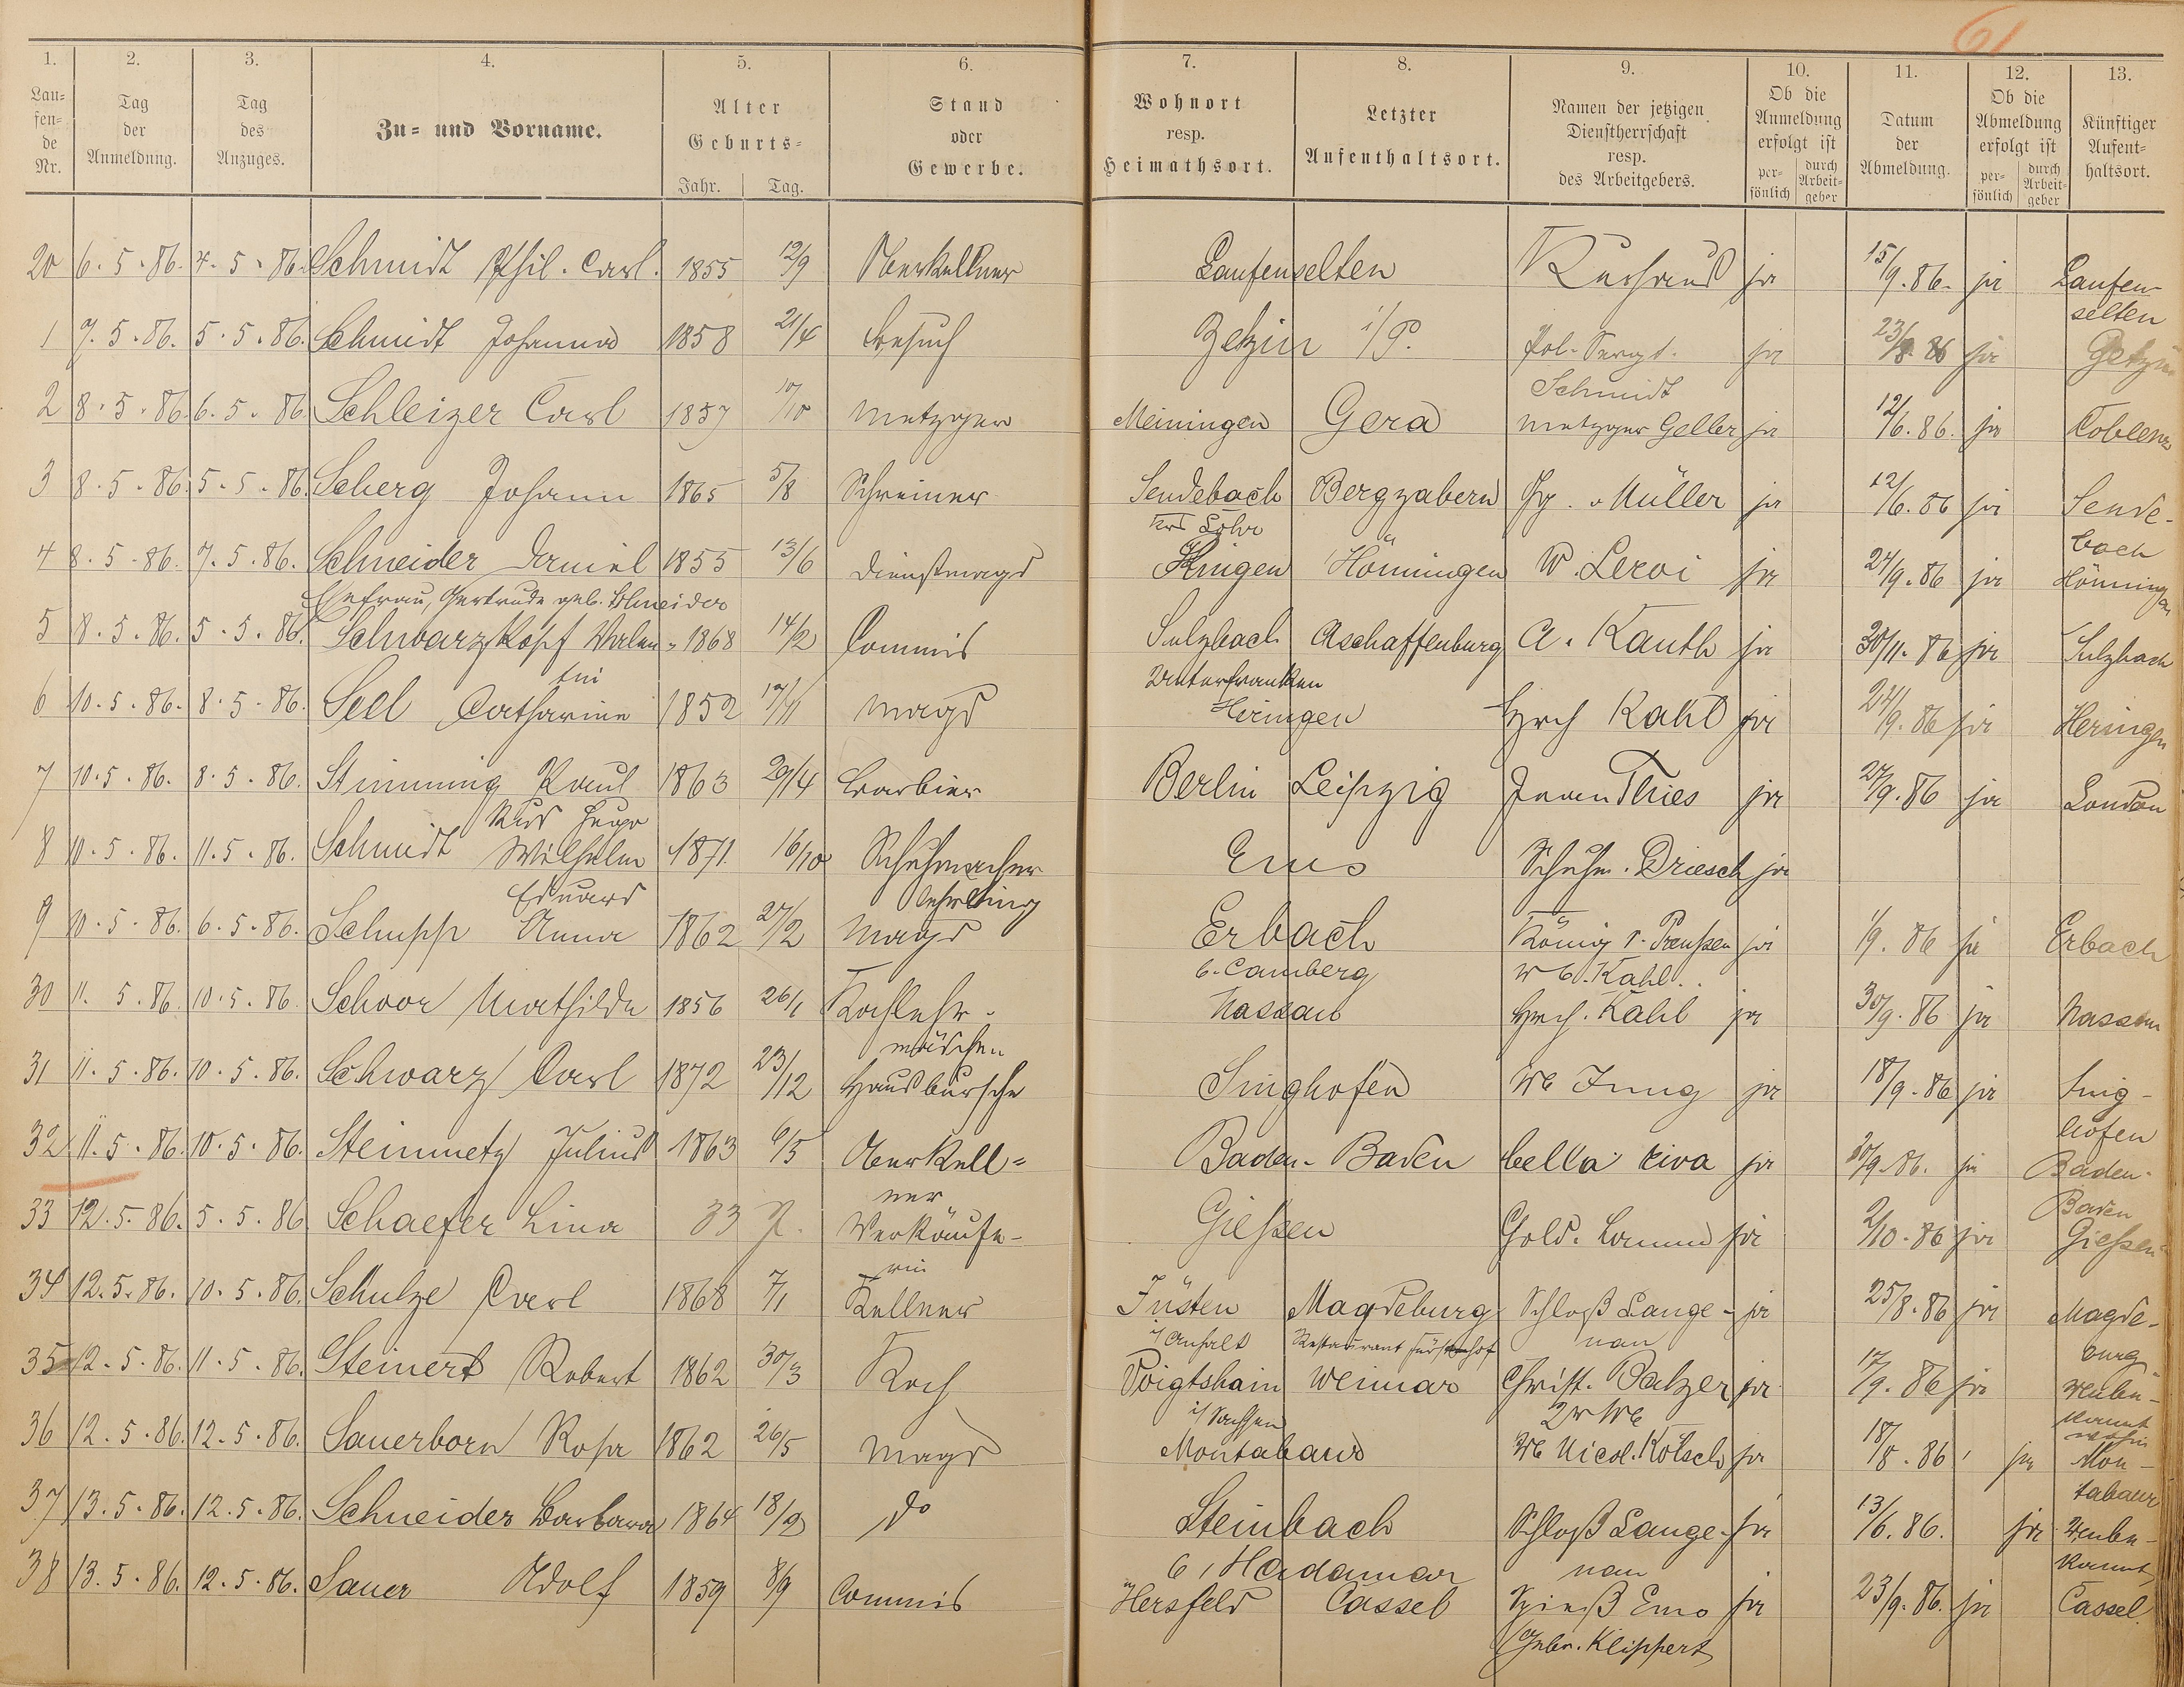 61
1. 2. 3. 4. 5. 6. 7. 8. 9. 10. 11. 12. 13.
Lau-fen-de Nr. Tag der Anmeldung. Tag des Anzuges. Zu- und Vorname. Alter Geburts- Jahr. Tag. Stand oder Gewerbe. Wohnort resp. Heimathsort. Letzter Aufenthaltsort. Namen der jetzigen Dienstherrschaft resp. des Arbeitgebers. Ob die Anmeldung erfolgt ist per-sönlich durch Arbeit-geber Datum der Abmeldung. Ob die Abmeldung erfolgt ist per-sönlich durch Arbeit-geber Künftiger Aufent-haltsort.
20 6.5.86. 4.5.86. Schmidt Phil. Carl. 1855 12/9 Oberkellner Laufenselten Kurhaus ja 15/9.86. ja Laufen-
selten
1 7.5.86. 5.5.86. Schmidt Johanna 1858 21/4 Besuch i/P. Pol. Sergt. ja 23/8 86 ja
Schmidt
2 8.5.86 6.5.86. Schleizer Carl 1857 10/10 Metzger Meiningen Gera Metzger Geller ja 12/6.86. ja Coblenz
3 8.5.86. 5.5.86. Scherg Johann 1865 5/8 Schreiner Sendebach Bergzabern Müller ja 12/6.86 ja Sende-
Krs Lohr bach
4 8.5.86. 7.5.86. Schneider Daniel 1855 13/6 Dienstmagd Hönningen W. Leroi ja 24/9.86 ja Hönningen
Ehefrau, Gertrude geb. Schneider
5 8.5.86. 5.5.86. Schwarzkopf Valen- 1868 14/2 Commis Sulzbach Aschaffenburg A. Kauth ja 30/11.86 ja Sulzbach
tin Unterfranken
6 10.5.86. 8.5.86. Seel Catharine 1852 17/11 Magd Heringen Hrch Kahl ja 24/9.86 ja Heringen
7 10.5.86. 8.5.86. Stimming Paul 1863 29/4 Barbier Berlin Leipzig Jean Thries ja 27/9.86 ja London
Kurt Hugo
8 10.5.86. 11.5.86. Schmidt Wilhelm 1871 16/10 Schuhmacher Ems Schuhm. Driesch ja
Eduard lehrling
9 10.5.86. 6.5.86. Schupp Anna 1862 27/2 Magd Erbach König v. Preußen ja 1/9.86 ja Erbach
b. Camberg W b. Kahl.
30 11.5.86. 10.5.86. Schoor Mathilde 1856 26/1 Kochlehr- Nassau Hrch. Kahl ja 30/9.86 ja Nassau
mädchen
31 11.5.86. 10.5.86. Schwarz Carl 1872 23/12 Hausbursche Singhofen Wb Jung ja 18/9.86 ja Sing-
hofen
32 11.5.86. 10.5.86. Steinmetz Julius 1863 6/5 Oberkell- Baden-Baden bella riva ja 20/9.86. ja Baden-
ner Baden
33 12.5.86. 5.5.86 Schaefer Lina 33 J. Verkäufe- Gießen Gold. Lamm ja 2/10.86 ja Gießen
rin
34 12.5.86. 10.5.86. Schulze Carl 1868 7/1 Kellner Güsten Magdeburg Schloß Lange- ja 25/8.86 ja Magde-
i/ Anhalt Restaurant Fürstenhof nau burg
35 12.5.86. 11.5.86. Steinert Robert 1862 30/3 Koch Voigtshain Weimar Christ. Balzer ja 17/9.86 ja Unbe-
i/ Sachsen 2r Wb kannt wohin
36 12.5.86. 12.5.86. Sauerborn Rosa 1862 26/5 Magd Montabaur Wb Nicol. Kötsch ja 18/8.86 ja Mon-
tabaur
37 13.5.86. 12.5.86. Schneider Barbara 1864 18/9 do Steinbach Schloß Lange- ja 13/6.86. ja Unbe-
b/ Hadamar nau kannt
38 13.5.86. 12.5.86. Sauer Adolf 1859 8/9 Commis Hersfeld Cassel Spieß Ems ja 23/9.86. ja Cassel
Gebr. Klippert